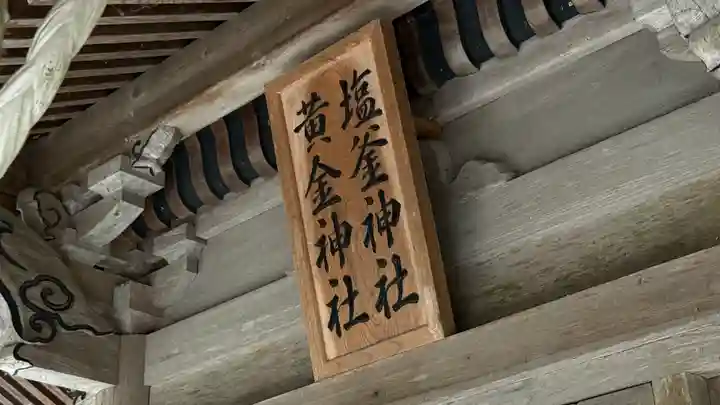 塩釜神社
黄金神社